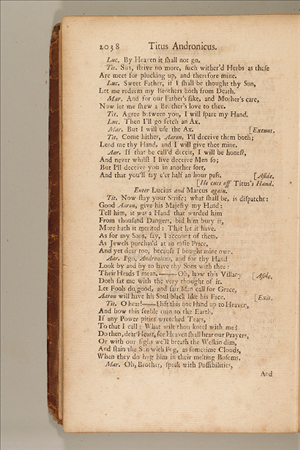 2038 Titus Andronicus.
Luc. By Heaven it shall not go.
Tit. Sirs, strive no more, such wither'd Herbs as these
Are meet for plucking up, and therefore mine.
Luc. Sweet Father, if I shall be thought thy Son,
Let me redeem my Brothers both from Death.
Mar. And for our Father's sake, and Mother's care,
Now let me shew a Brother's love to thee.
Tit. Agree between you, I will spare my Hand.
Luc. Then I'll go fetch an Ax.
Mar. But I will use the Ax. [Exeunt.
Tit. Come hither, Aaron, I'll deceive them both;
Lend me thy Hand, and I will give thee mine.
Aar. If that be call'd deceit, I will be honest,
And never whilst I live deceive Men so;
But I'll deceive you in another sort,
And that you'll say e'er half an hour pass. [Aside.
[He cuts off Titus's Hand.
Enter Lucius and Marcus again.
Tit. Now stay your Strife; what shall be, is dispatcht:
Good Aaron, give his Majesty my Hand:
Tell him, it was a Hand that warded him
From thousand Dangers, bid him bury it,
More hath it merited: That let it have.
As for my Sons, say, I account of them,
As Jewels purchas'd at an easie Price,
And yet dear too, because I bought mine own.
Aar. I go, Andronicus, and for thy Hand
Look by and by to have thy Sons with thee:
Their Heads I mean.——Oh, how this Villany [Aside.
Doth fat me with the very thought of it.
Let Fools do good, and fair Men call for Grace,
Aaron will have his Soul black like his Face. [Exit.
Tit. O hear!——I lift this one Hand up to Heaven,
And bow this feeble ruin to the Earth;
If any Power pities wretched Tears,
To that I call: What wilt thou kneel with me?
Do then, dear Heart, for Heaven shall hear our Prayers,
Or with our sighs we'll breath the Welkin dim,
And stain the Sun with Fog, as sometime Clouds,
When they do hug him in their melting Bosoms.
Mar. Oh, Brother, speak with Possibilities,
And